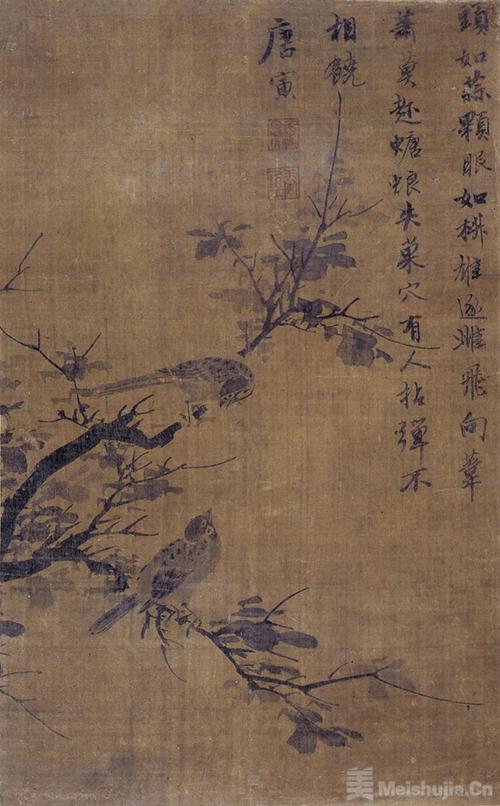 頭如蒜顆眼如椒雄逐雌飛向葦
蕭莫趂螗蜋失巢穴有人拈彈不
相饒
唐寅
美 Meishujia.Cn